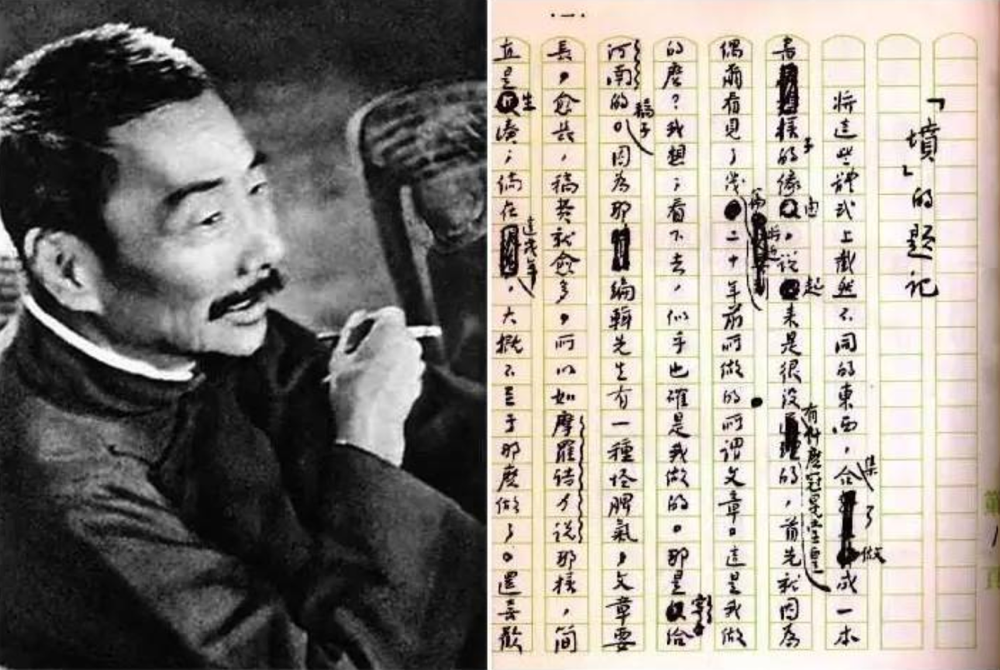 ·一·
「墳」的題記
將這些體式上截然不同的東西,合集了做成一本
書樣子的緣由,說起來是很沒有什麼冠冕堂皇的,首先就因為
偶爾看見了幾篇將近二十年前所做的所謂文章。這是我做
的麼?我想;看下去,似乎也確是我做的。那是寄給
河南的稿子。因為那編輯先生有一種怪脾氣,文章要
長,愈長,稿費就愈多,所以如摩羅詩力說那樣,簡
直是生湊;倘在這幾年,大概不至于那麼做了。還喜歡